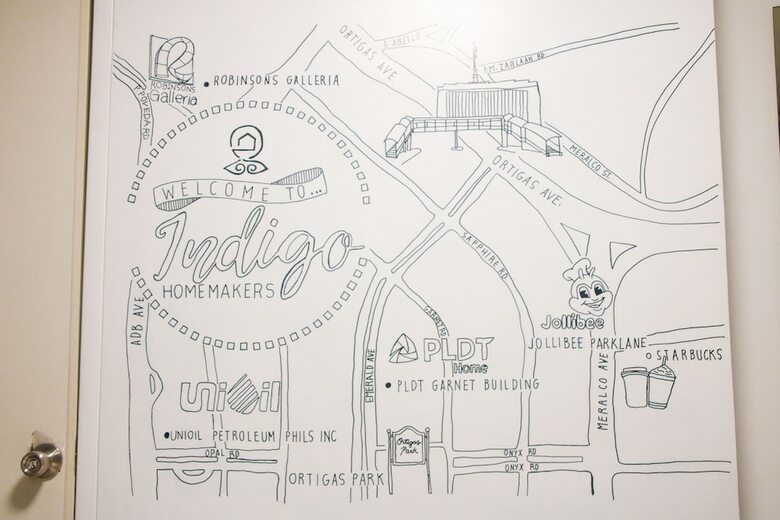 ORTIGAS AVE.
E. ABELLO
F.M. ZABLAAN RD
ROBINSONS
Galleria
ROBINSONS GALLERIA
POVEDA RD
MERALCO ST.
ORTIGAS AVE.
WELCOME TO...
Indigo
HOMEMAKERS
SAPPHIRE RD
ADB AVE
GARNET RD
Jollibee
JOLLIBEE PARKLANE
PLDT
Home
PLDT GARNET BUILDING
EMERALD AVE
MERALCO AVE
STARBUCKS
UNiOiL
UNIOIL PETROLEUM PHILS INC
Ortigas
Park
OPAL RD
ONYX RD
ONYX RD
ORTIGAS PARK